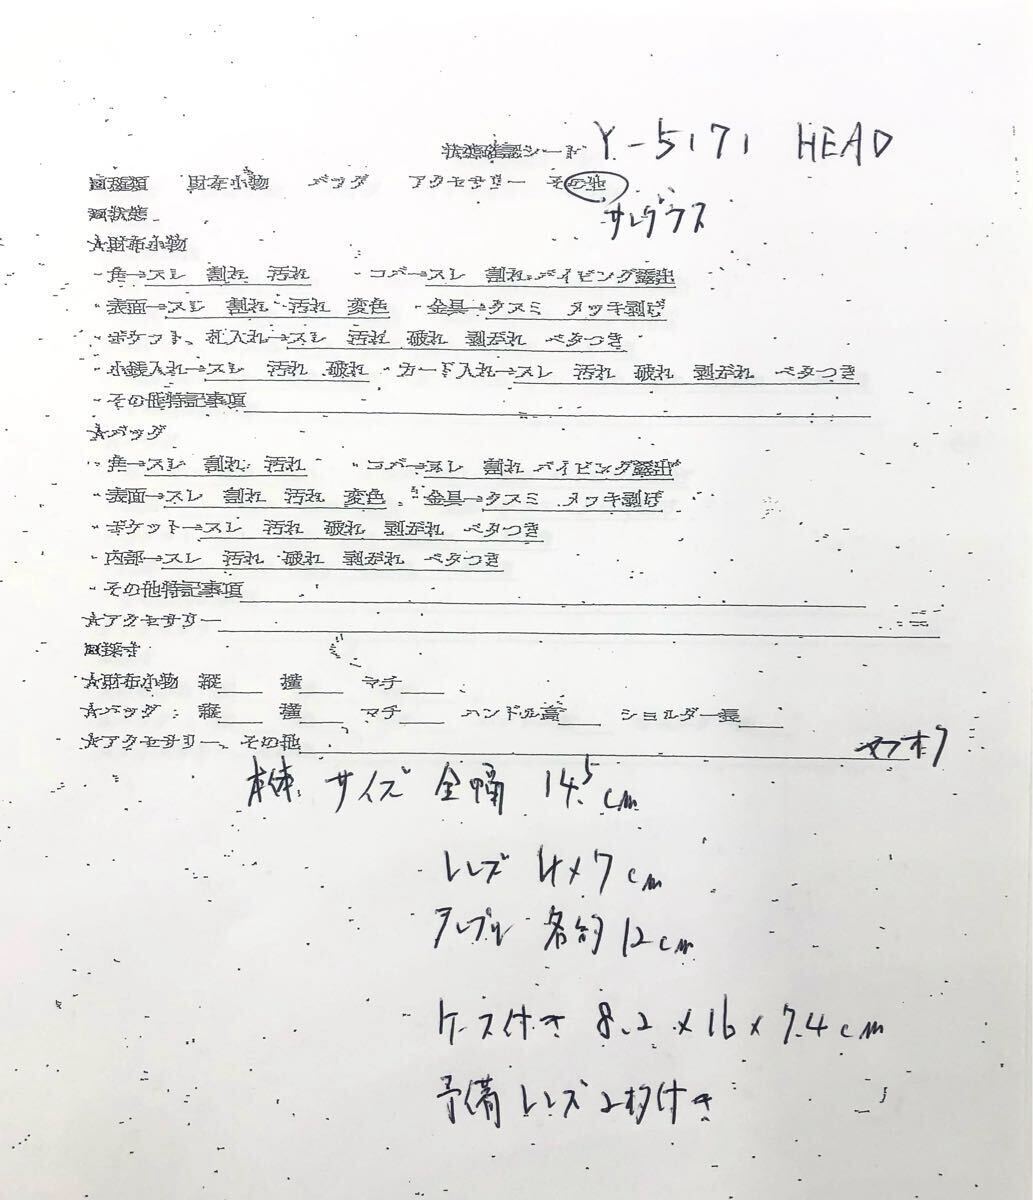 状態確認シート Y-5171 HEAD
■種類 財布小物 バッグ アクセサリー その他
サングラス
■状態
★財布小物
・角→スレ 割れ 汚れ ・コバ→スレ 割れ パイピング露出
・表面→スレ 割れ 汚れ 変色 ・金具→クスミ メッキ剥げ
・ポケット、札入れ→スレ 汚れ 破れ 剥がれ ベタつき
・小銭入れ→スレ 汚れ 破れ ・カード入れ→スレ 汚れ 破れ 剥がれ ベタつき
・その他特記事項
★バッグ
・角→スレ 割れ 汚れ ・コバ→スレ 割れ パイピング露出
・表面→スレ 割れ 汚れ 変色 ・金具→クスミ メッキ剥げ
・ポケット→スレ 汚れ 破れ 剥がれ ベタつき
・内部→スレ 汚れ 破れ 剥がれ ベタつき
・その他特記事項
★アクセサリー
■採寸
★財布小物 縦 横 マチ
★バッグ 縦 横 マチ ハンドル高 ショルダー長
★アクセサリー、その他
ヤフオク
本体サイズ 全幅 14.5cm
レンズ 4×7cm
テンプル 各約12cm
ケース付き 8.2×16×7.4cm
予備レンズ2枚付き